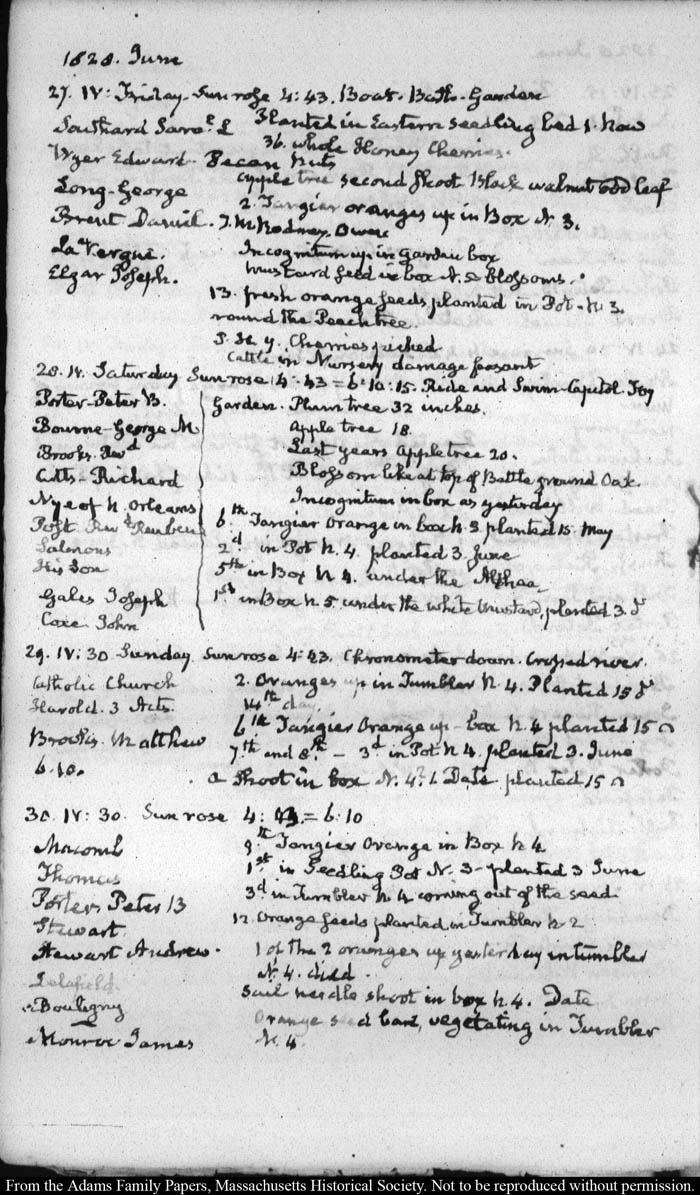 1828. June
27. IV: Friday. Sun rose 4:43. Boat. Bath. Garden
Southard Saml. L Planted in Eastern seedling bed 1. Row
36. whole Honey Cherries.
Wyer Edward. Pecan Nuts
Apple tree second shoot Black walnut odd leaf
Long. George
2. Tangier oranges up in Box N 3.
Brent Daniel. T. M Rodney. Owen
La Vergne. Incognitum up in Garden box
Elgar Joseph. Mustard seed in box N. 5 Blossoms.
13. fresh orange seeds planted in Pot. N 3.
round the Peach tree.
Cherries picked
Cattle in Nursery damage feasant
28. IV. Saturday Sun rose 4:43 = 6:10:15. Ride and Swim. Capitol.
Porter. Peter B. Garden. Plum tree 32 inches.
Bourne. George M Apple tree 18.
Brooks. Revd Last years Apple tree 20.
Cutts. Richard Blossom like at top of Battle ground Oak.
Nye of N. Orleans Incognitum in box as yesterday
Post. Revd Reuben 6th Tangier Orange in box N. 3 planted 15 May
Salmons 2d in Pot N. 4. planted 3. June
His Son 5th in Box N 4. under the Althaea
Gales Joseph 1st in Box N 5. under the white Mustard, planted 3. d
Coxe John
29. IV: 30 Sunday. Sun rose 4:43. Chronometer down. Crossed river.
Catholic Church 2. Oranges up in Tumbler N. 4. Planted 15
Harold. 3 Acts. 14th day
6th Tangier Orange up - box N. 4 planted 15
Brooks. Matthew 7th and 8th - 3d in Pot N 4. planted 3. June
6.10. a Shoot in box N. 4. Date planted 15
30. IV: 30. Sun rose 4:43. = 6:10
Macomb 9th Tangier Orange in Box N 4
Thomas 1st in Seedling Pot N. 3 - planted 3 June
Porter Peter B 3d in Tumbler N 4 coming out of the seed
Stewart 12. Orange seeds planted in Tumbler N 2
Stewart Andrew. 1 of the 2 oranges up yesterday in tumbler
N. 4. died.
Delafield. Sail needle shoot in box N 4. Date
Bouligny Orange seed bare, vegetating in Tumbler
Monroe James N. 4.
From the Adams Family Papers, Massachusetts Historical Society. Not to be reproduced without permission.